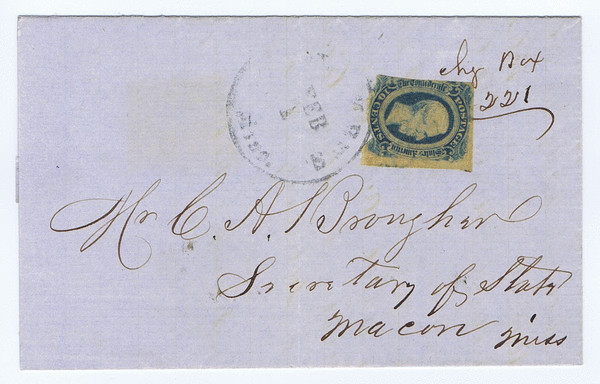 Chg Box
221
The Confederate
POSTAGE
States America
TEN CENTS
FEB
MISS.
Mr C. A. Brougher
Secretary of State
Macon Miss